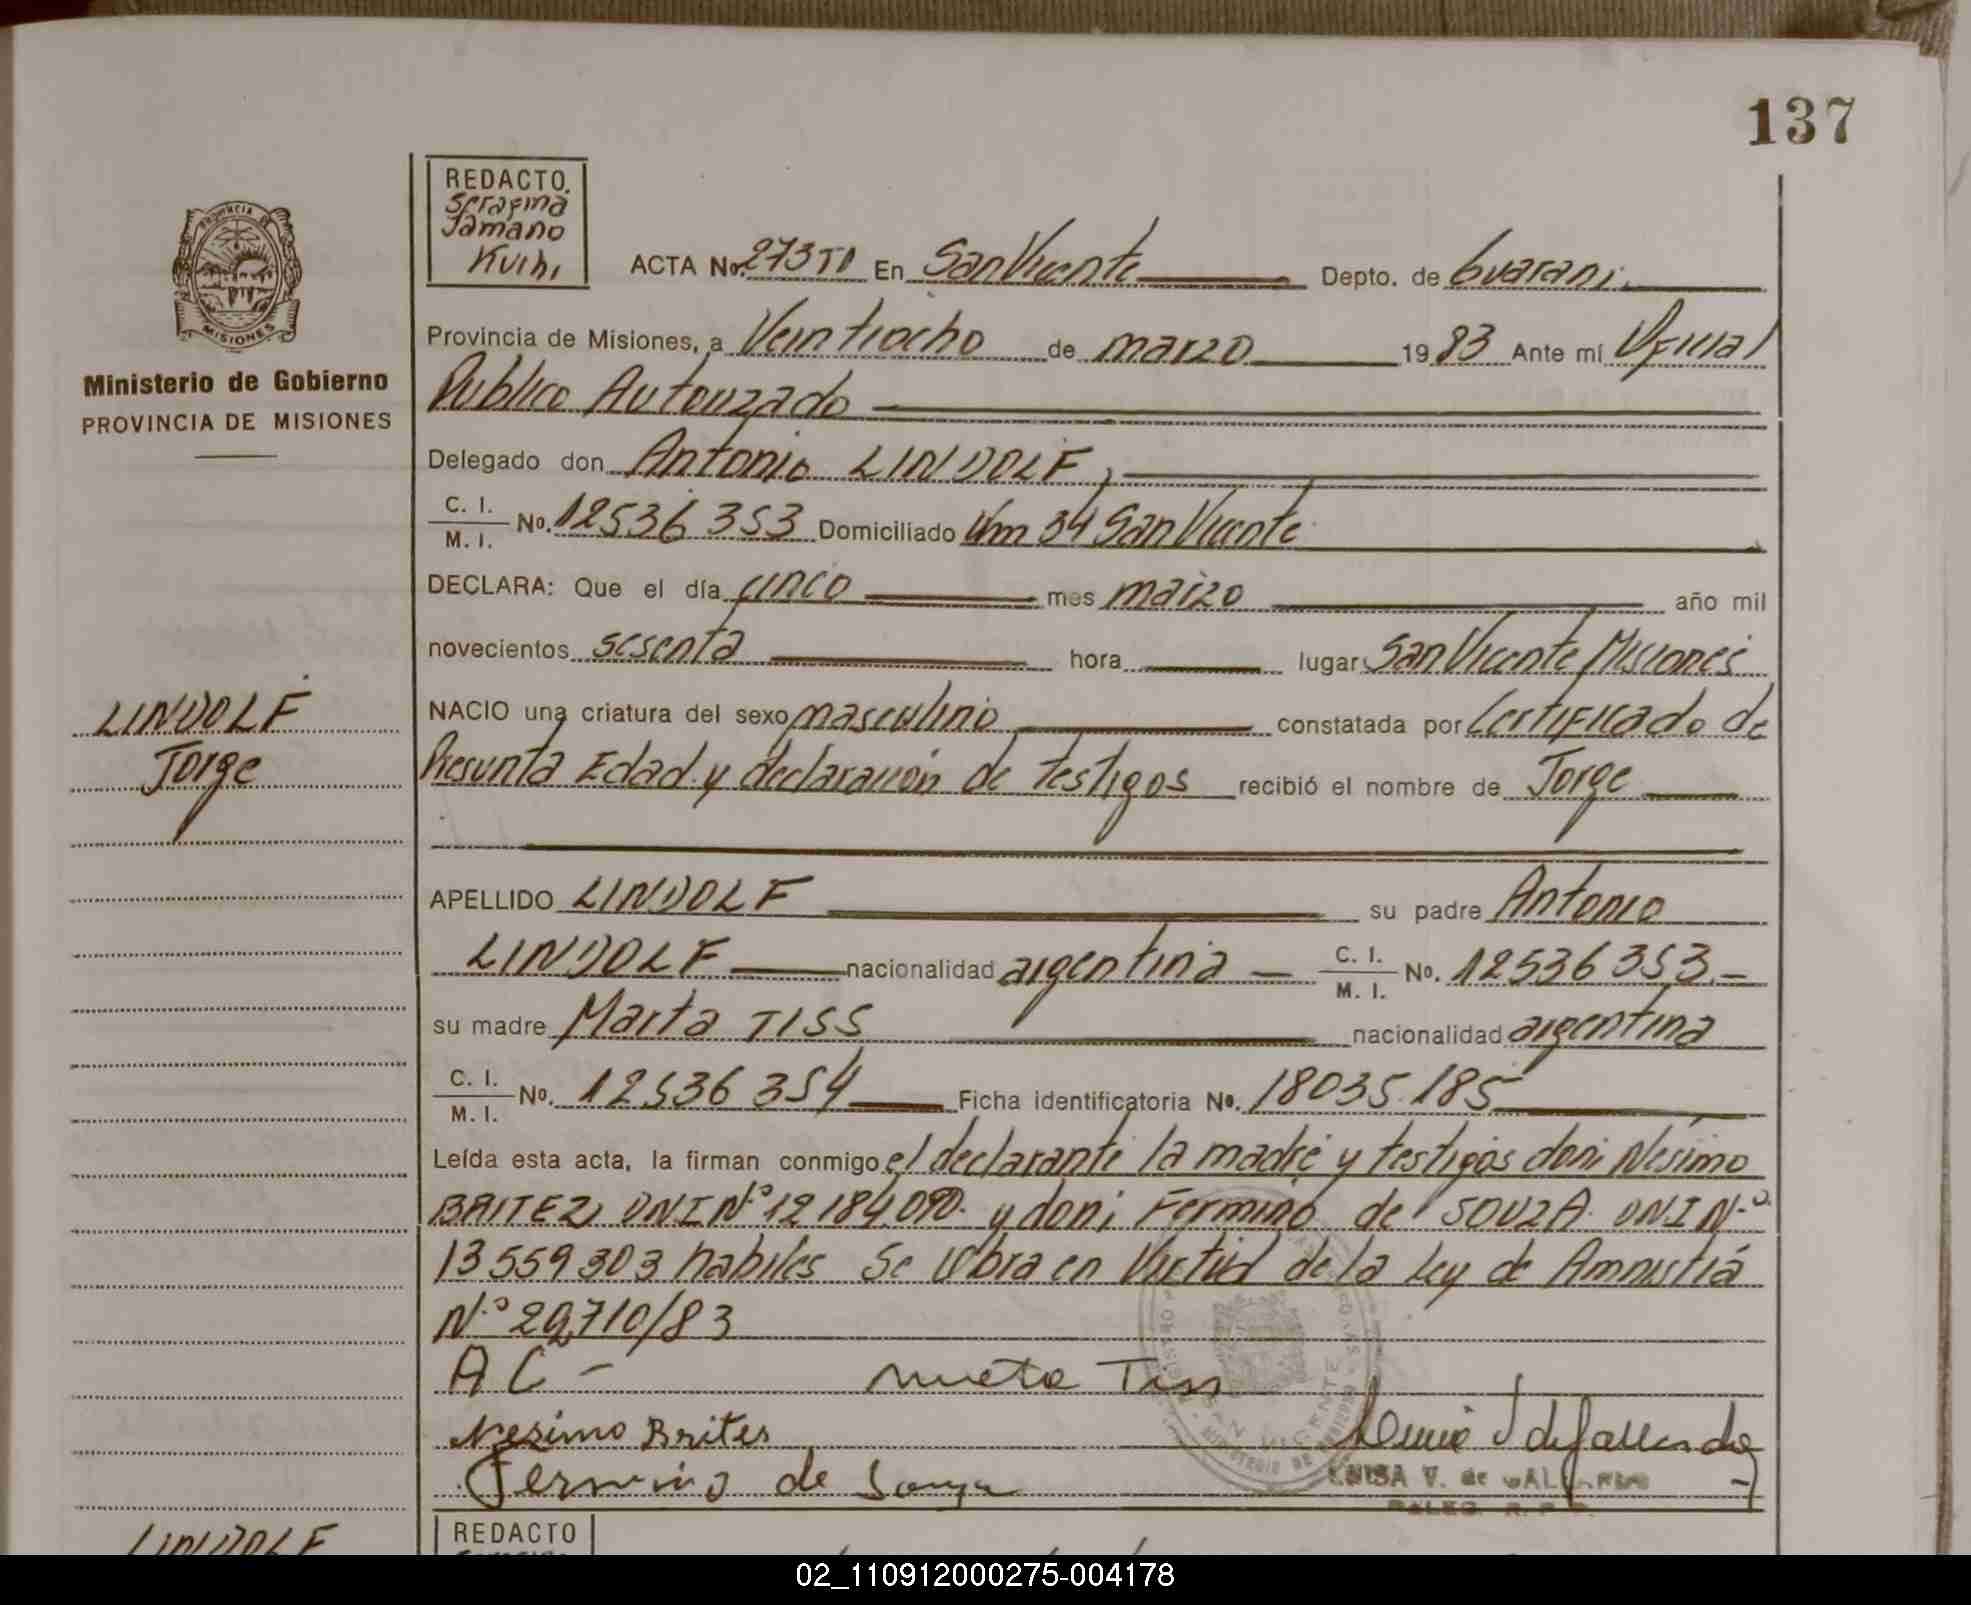 137
REDACTO.
Serafina
Tamano
Kuihi
PROVINCIA DE
MISIONES
ACTA No. 273 T0 En San Vicente Depto. de Guarani
Provincia de Misiones, a Veintiocho de marzo 1983 Ante mí Oficial
Ministerio de Gobierno
Publico Autorizado
PROVINCIA DE MISIONES
Delegado don Antonio LINDOLF,
C. I.
M. I. No. 12536353 Domiciliado Km 34 San Vicente
DECLARA: Que el día cinco mes marzo año mil
novecientos sesenta hora lugar San Vicente Misiones
LINDOLF
NACIO una criatura del sexo masculino constatada por Certificado de
Jorge
Presunta Edad y declaración de testigos recibió el nombre de Jorge
APELLIDO LINDOLF su padre Antonio
LINDOLF nacionalidad argentina C. I. M. I. No. 12536353.
su madre Marta TISS nacionalidad argentina
C. I.
M. I. No. 12536354 Ficha identificatoria No. 18035.185
Leída esta acta, la firman conmigo el declarante la madre y testigos don: Nesimo
BRITEZ, DNI Nº 12184090. y don: Fermino de SOUZA DNI N.º
13559303 habiles Se labra en Virtud de la Ley de Amnistiá
N.º 20,710/83
A C - Tiss
Nesimo Brites
LUISA V. de GALLARDO
Fermino de Souza
REDACTO
LINDOLF
02_110912000275-004178